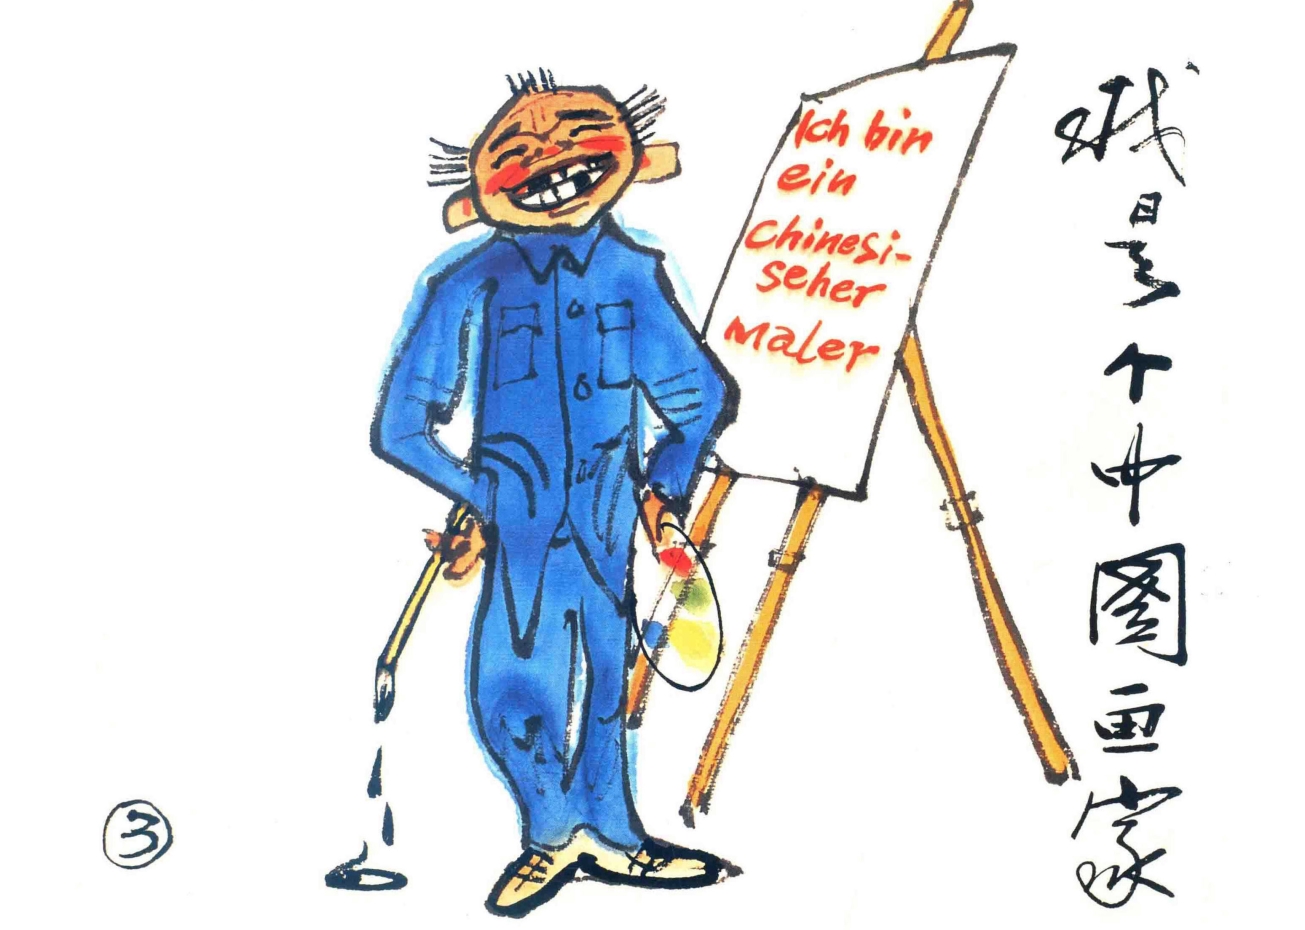 Ich bin
ein
Chinesi-
seher
Maler
我是个中国画家
3